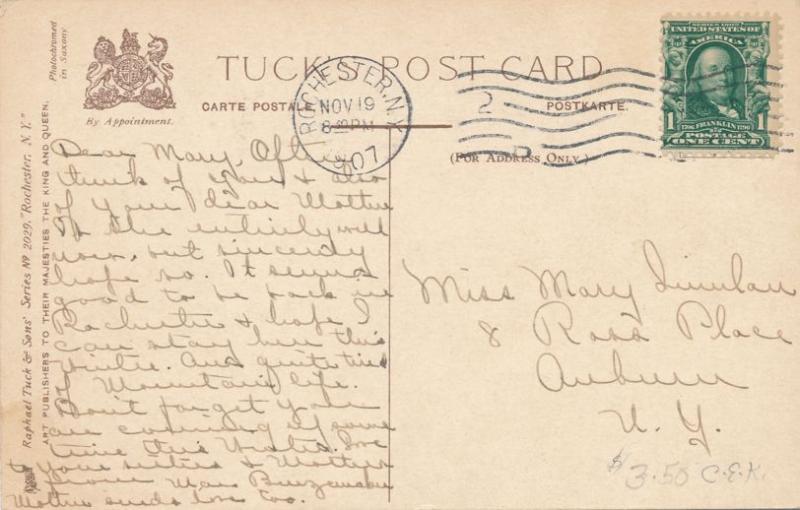 Photochromed
in Saxony
By Appointment.
TUCK'S POST CARD
CARTE POSTALE.
POSTKARTE.
(FOR ADDRESS ONLY.)
ROCHESTER, N.Y.
NOV 19
8 PM
1907
2
SERIES 1902
UNITED STATES OF
AMERICA
1 1
1706 FRANKLIN 1790
POSTAGE
ONE CENT
Raphael Tuck & Sons' Series Nº 2029, "Rochester, N. Y."
ART PUBLISHERS TO THEIR MAJESTIES THE KING AND QUEEN.
Dear Mary, Often
think of you & also
of your dear Mother
Is she entirely well
now, but sincerely
hope so. It seems
good to be back in
Rochester & hope I
can stay here this
winter. Am quite tired
of Mountain life.
Don't forget you
are coming up some
time this Winter. Love
to your sisters & Mother
from
Mother sends love too.
Miss Mary
8 Ross Place
Auburn
N. Y.
$3.50 C.E.K.